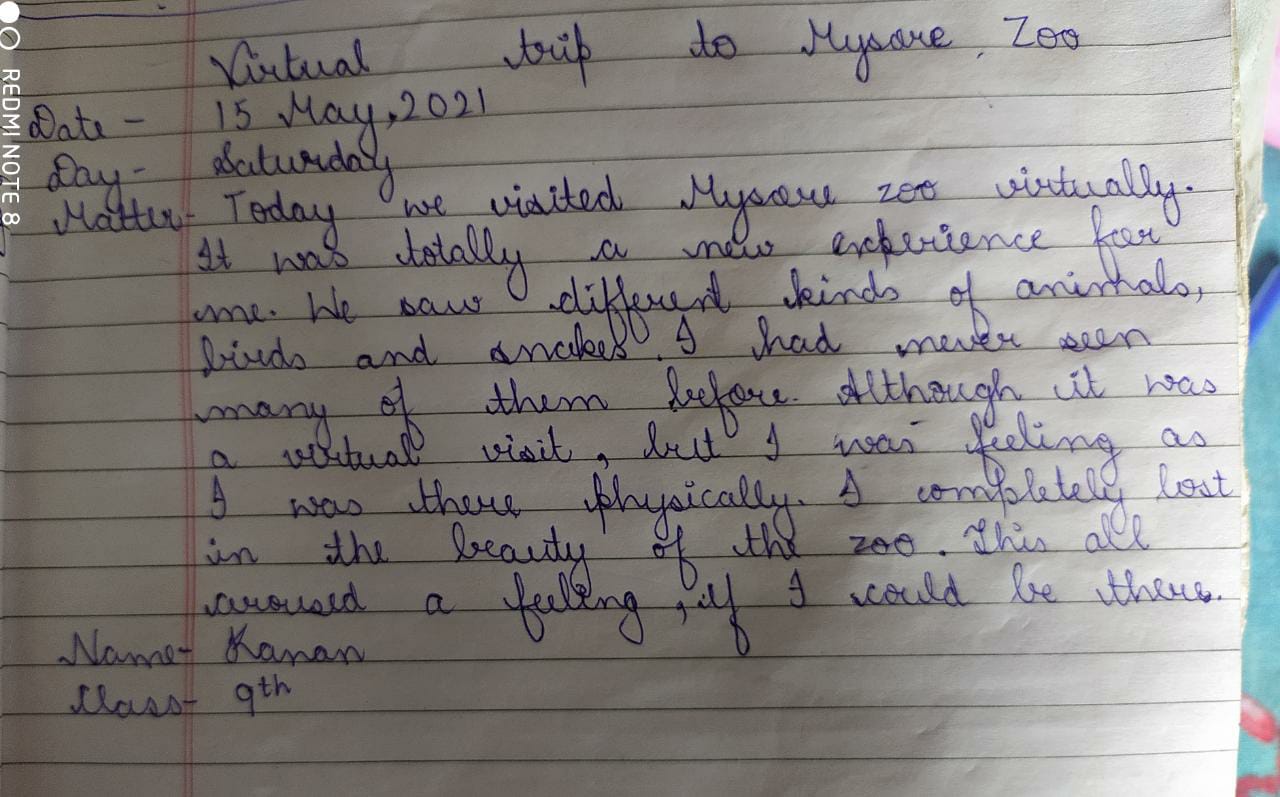 Virtual trip to Mysore Zoo
Date - 15 May, 2021
Day - Saturday
Matter - Today we visited Mysore zoo virtually.
It was totally a new experience for
me. We saw different kinds of animals,
birds and snakes. I had never seen
many of them before. Although it was
a virtual visit, but I was feeling as
I was there physically. I completely lost
in the beauty of the zoo. This all
aroused a feeling, if I could be there.
Name - Kanan
Class - 9th
REDMI NOTE 8